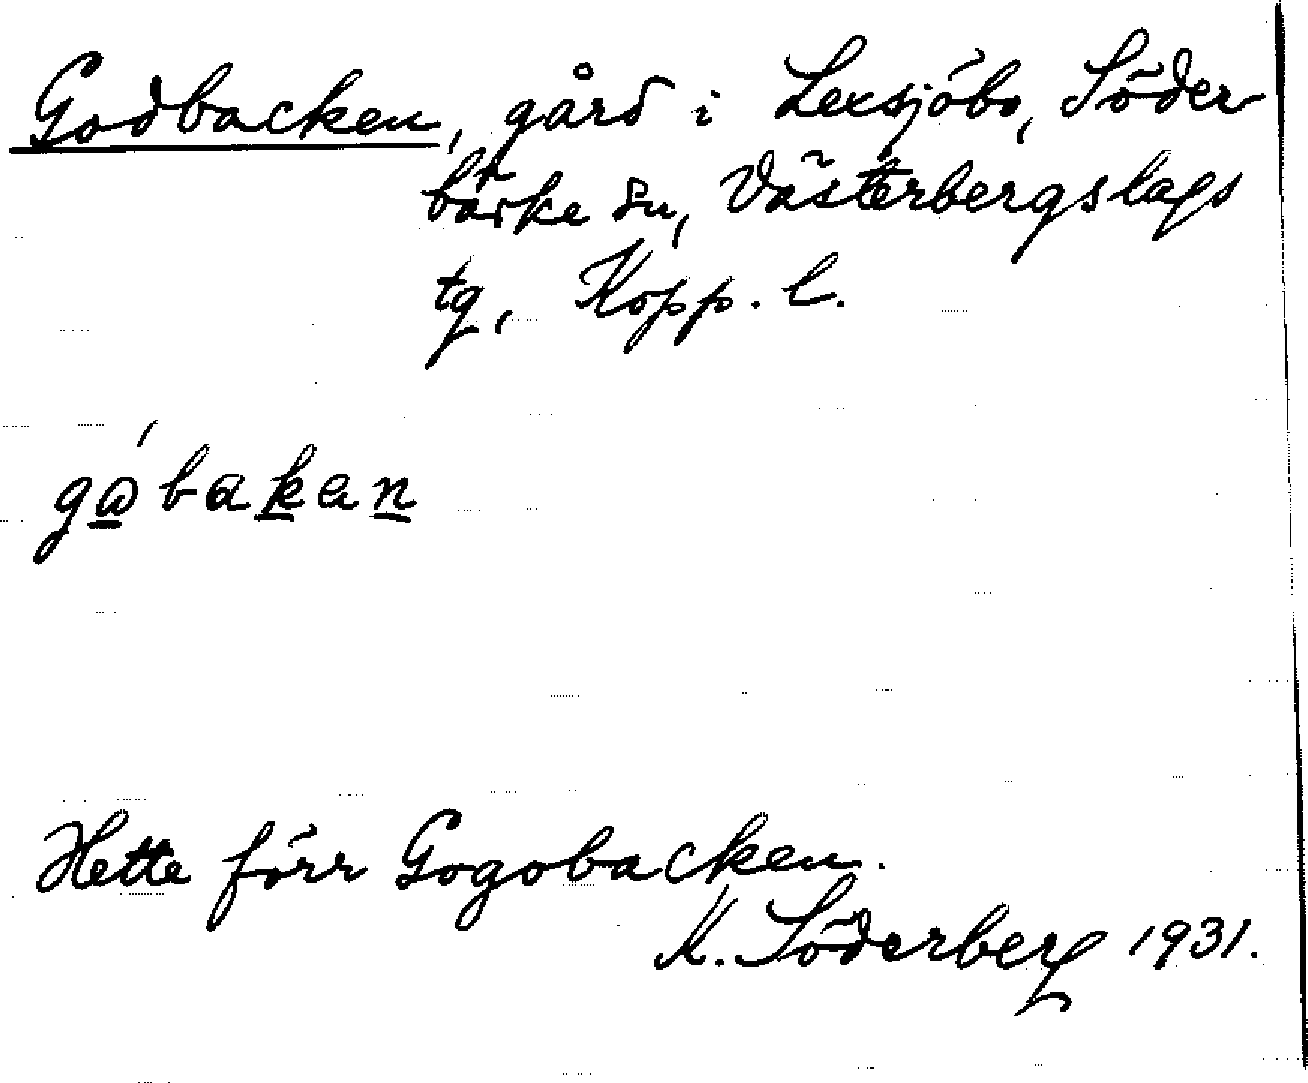 Godbacken, gård i Lexsjöbo, Söder
bärke sn, Västerbergslags
tg, Kopp. l.
gωbakan
Hette förr Gogobacken.
K. Söderberg 1931.